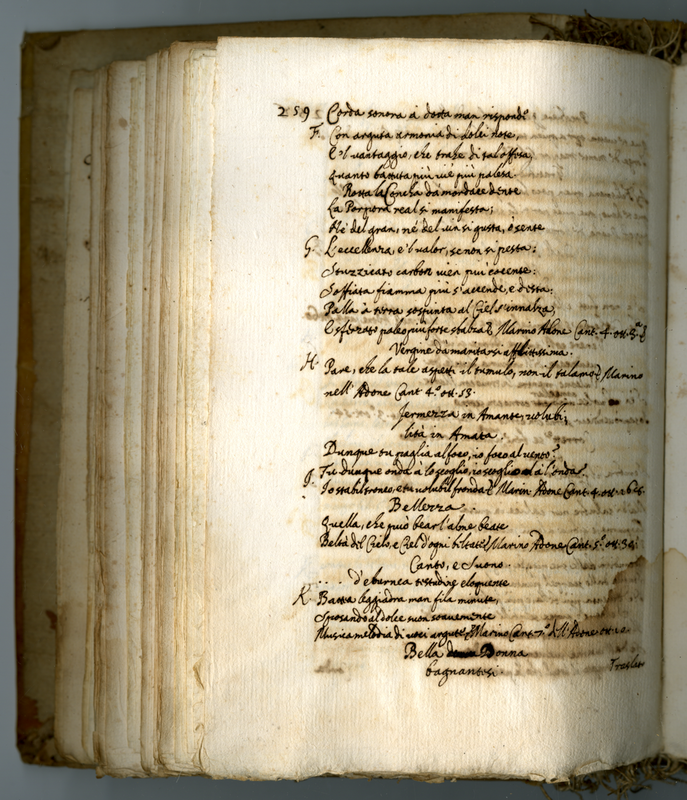 259 Corda sonora à dotta man risponde
F. Con arguta armonia di dolci note,
E'l vantaggio, che trahe di tal offesa,
Quanto battuta più vie più palesa.
Rotta la Concha da mordace dente
La Porpora real si manifesta;
Nè del gran, né del vin si gusta, ò sente
G. L'eccellenza, e'l valor, se non si pesta:
Stuzzicato carbon vien più cocente:
Soffiata fiamma più s'accende, e desta:
Palla à terra sospinta al Ciel s'innalza,
E sferzato paleo più forte sbalza. Marino Adone Cant. 4. ott. 5.ª
Vergine da maritarsi afflittissima.
H. Pare, che la tale aspetti il tumulo, non il talamo. Marino
nell'Adone Cant 4.º ott. 53.
Fermezza in Amante, volubi;
lità in Amata.
Dunque tu paglia al foco, io foco al vento?
J. Tu dunque onda à lo scoglio, io scoglio à l'onda?
Io stabil tronco, e tu volubil fronda? Marin. Adone Cant. 4. ott.
Bellezza.
Quella, che può bear l'alme beate
Beltà del Cielo, e Ciel d'ogni beltate. Marino Adone Cant. 5.º ott. 38.
Canto, e Suono.
.... d'eburnea testudine eloquente
K. Batta leggiadra man fila minute,
Sposando al dolce suon soavemente
Musica melodia di voci argute. Marino Cant. 7.º dell'Adone ott.
Bella Donna
bagnantesi.